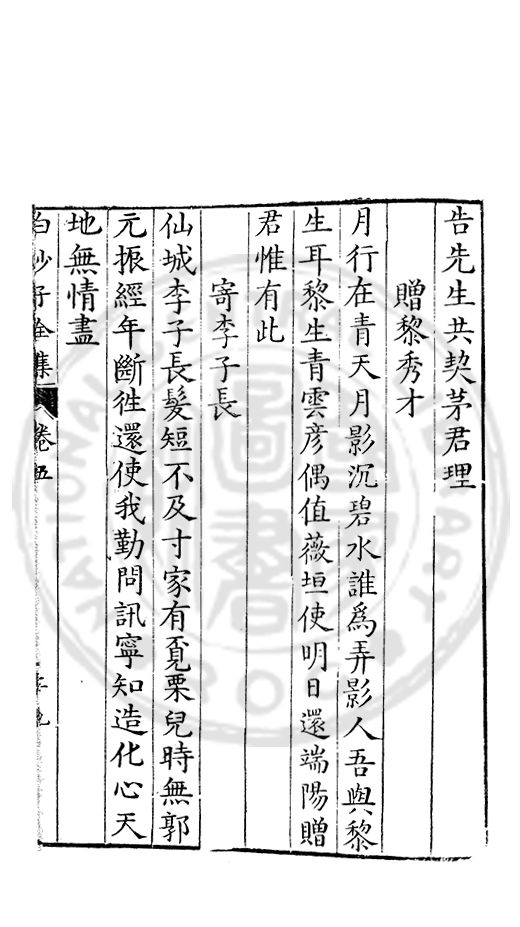 告先生共契茅君理
贈黎秀才
月行在青天月影沉碧水誰為弄影人吾與黎
生耳黎生青雲彦偶值薇垣使明日還端陽贈
君惟有此
寄李子長
仙城李子長髮短不及寸家有覔栗兒時無郭
元振經年斷徃還使我勤問訊寧知造化心天
地無情盡
白沙子全集
卷五